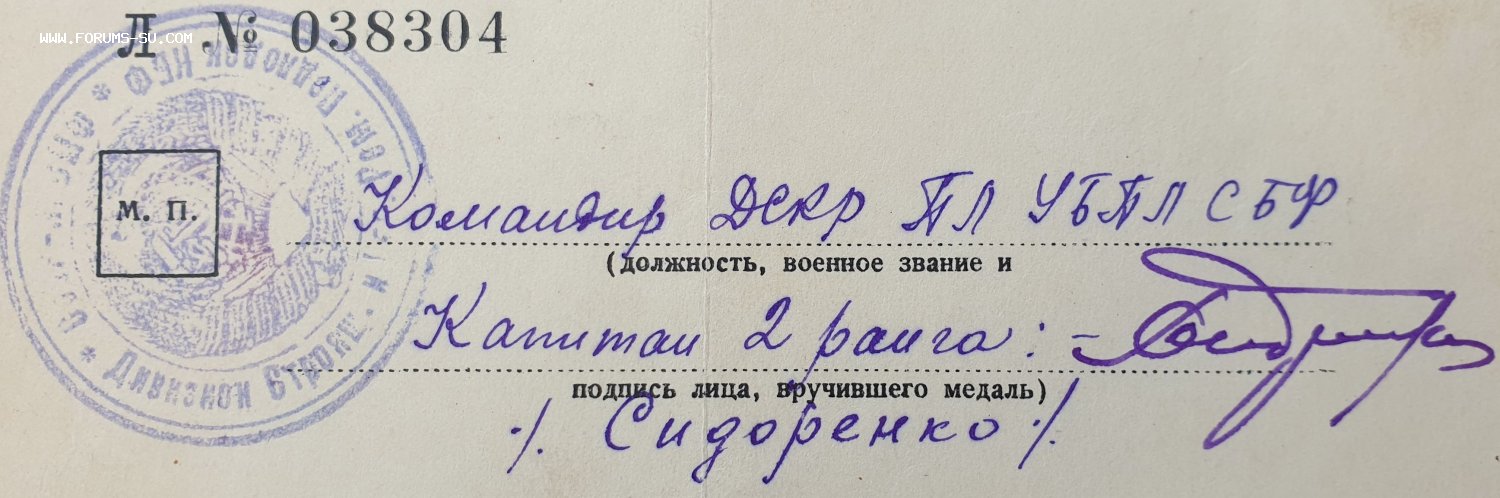 WWW.FORUMS-SU.COM
Л № 038304
Дивизион Строящ. и Г Рем. Подлодок КБФ
М. П.
Командир ДСКР ПЛ УБПЛ СБФ
(должность, военное звание и
Капитан 2 ранга: -
подпись лица, вручившего медаль)
./. Сидоренко ./.